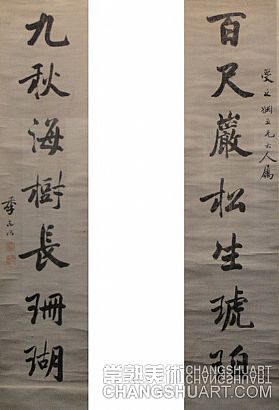 百尺巖松生琥珀
九秋海樹長珊瑚
常熟美術
CHANGSHUART.COM